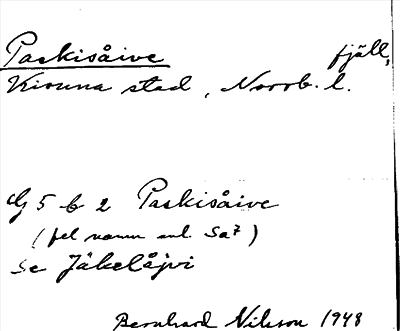 Paskisåive fjäll,
Kiruna stad, Norrb. l.
G 5 b 2 Paskisåive
(fel namn enl. Sa?)
Se Jäkelåjvi
Bernhard Nilsson 1948